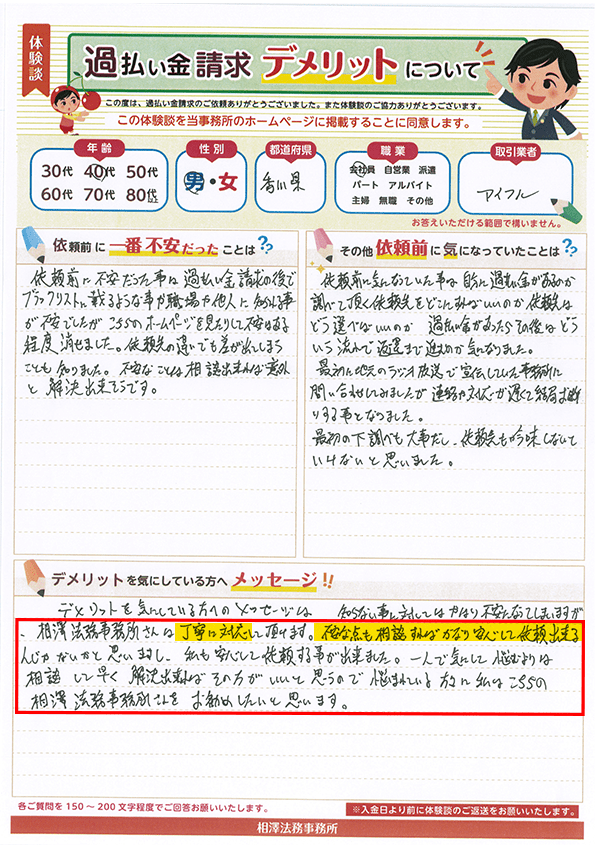 体験談
過払い金請求 デメリットについて
この度は、過払い金請求のご依頼ありがとうございました。また体験談のご協力ありがとうございます。
この体験談を当事務所のホームページに掲載することに同意します。
年齢
30代 40代 50代
60代 70代 80代以上
性別
男・女
都道府県
香川県
職業
会社員 自営業 派遣
パート アルバイト
主婦 無職 その他
取引業者
アイフル
お答えいただける範囲で構いません。
依頼前に一番不安だったことは??
依頼前に不安だった事は過払い金請求の後で
ブラックリストに載るような事や職場や他人に知られる事
が不安でしたがこちらのホームページを見たりして不安はある
程度消せました。依頼先の違いでも差が出てしまう
ことも知りました。不安なことは相談出来れば意外
と解決出来そうです。
その他依頼前に気になっていたことは??
依頼前に気になっていた事は自分に過払い金があるのか
調べて頂く依頼先をどこにすればいいのか依頼先は
どう選べばいいのか 過払い金があったらその後はどう
いう流れで返還まで進むのか気になりました。
最初に地元のラジオ放送で宣伝していた事務所に
問い合わせしてみましたが連絡や対応が遅くて結局お断
りする事となりました。
最初の下調べも大事だし、依頼先も吟味しないと
いけないと思いました。
デメリットを気にしている方へメッセージ!!
デメリットを気にしている方へのメッセージは 知らない事に対してはかなり不安になってしまいますが
、相澤法務事務所さんは丁寧に対応して頂けます。不安な点も相談すればかなり安心して依頼出来る
んじゃないかと思いますし、私も安心して依頼する事が出来ました。一人で気にして悩むよりは
相談して早く解決出来ればその方がいいと思うので悩まれている方に私はこちらの
相澤法務事務所さんをお勧めしたいと思います。
各ご質問を150～200文字程度でご回答お願いいたします。
※入金日より前に体験談のご返送をお願いいたします。
相澤法務事務所